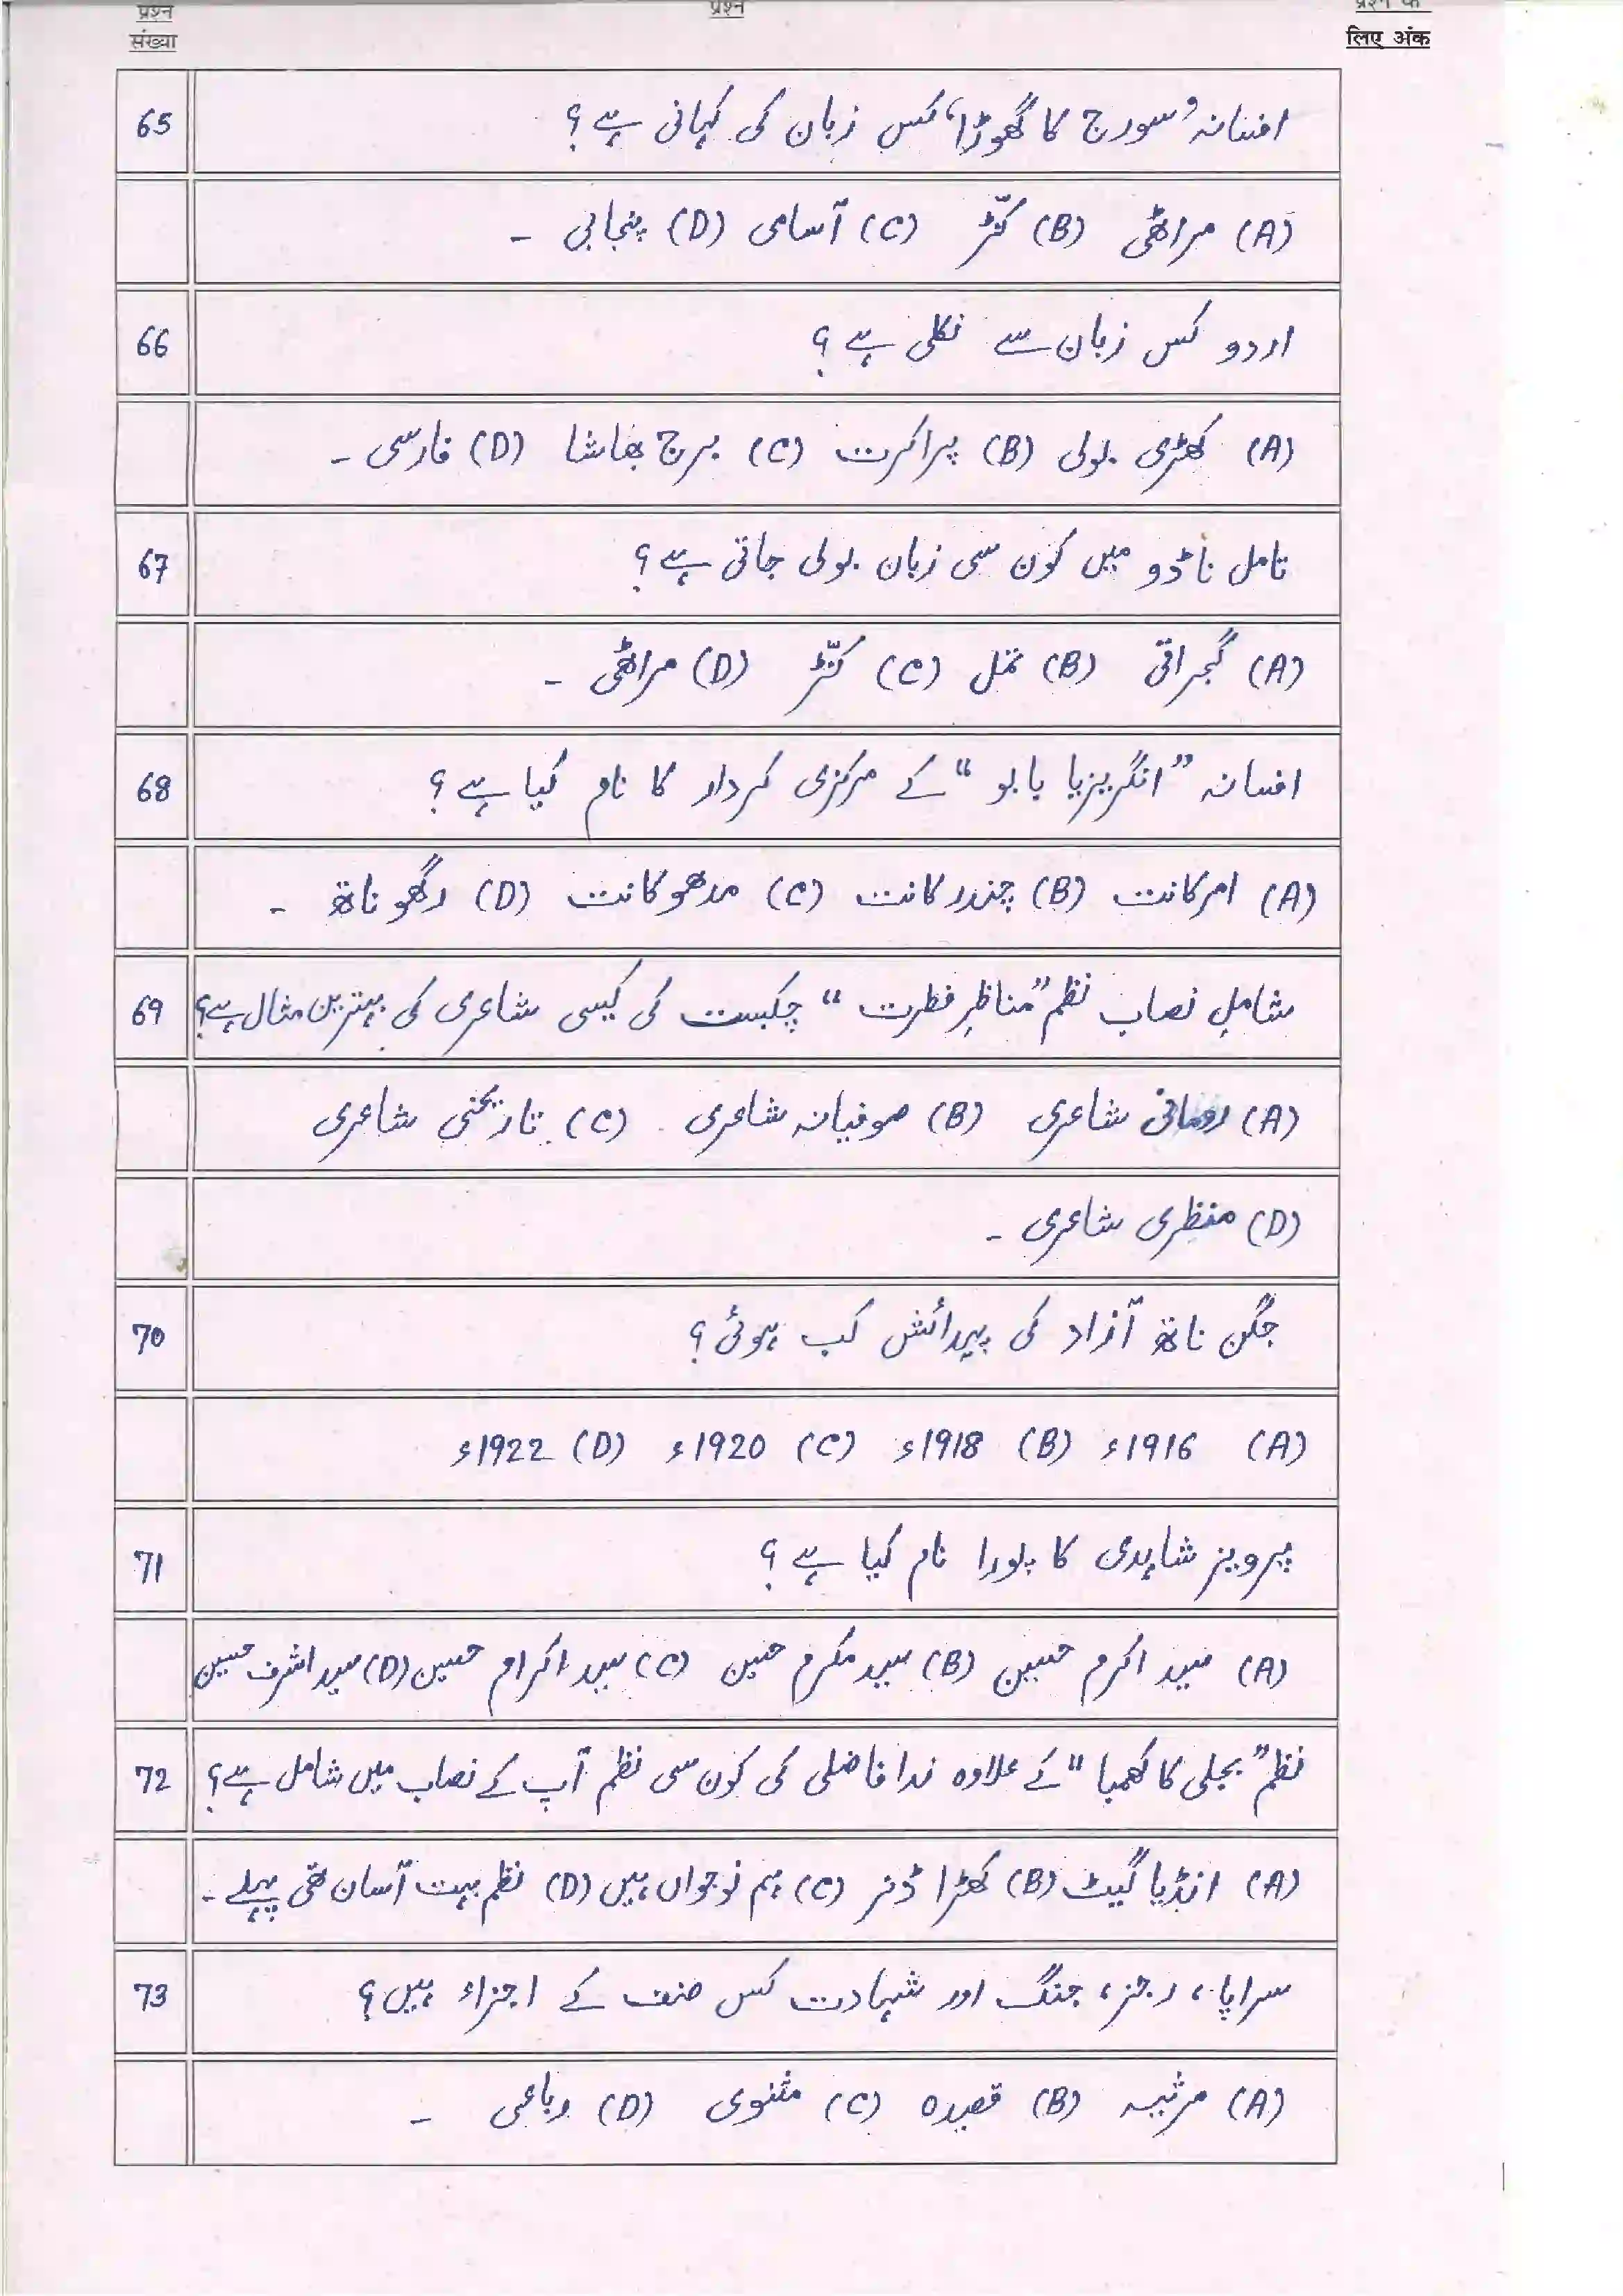 प्रश्न
संख्या
प्रश्न
प्रश्न के
लिए अंक
65 افسانہ ‘سورج کا گھوڑا’ کس زبان کی کہانی ہے؟
(A) مراٹھی (B) کنّڑ (C) آسامی (D) پنجابی ۔
66 اردو کس زبان سے نکلی ہے؟
(A) کھڑی بولی (B) پراکرت (C) برج بھاشا (D) فارسی ۔
67 تامل ناڈو میں کون سی زبان بولی جاتی ہے؟
(A) گجراتی (B) تمل (C) کنّڑ (D) مراٹھی ۔
68 افسانہ ”انگریزیا بابو“ کے مرکزی کردار کا نام کیا ہے؟
(A) امرکانت (B) چندرکانت (C) مدھوکانت (D) رگھوناتھ ۔
69 شامل نصاب نظم ”مناظرِ فطرت“ چکبست کی کیسی شاعری کی بہترین مثال ہے؟
(A) رومانی شاعری (B) صوفیانہ شاعری (C) تاریخی شاعری
(D) منظری شاعری ۔
70 جگن ناتھ آزاد کی پیدائش کب ہوئی؟
(A) 1916ء (B) 1918ء (C) 1920ء (D) 1922ء
71 پرویز شاہدی کا پورا نام کیا ہے؟
(A) سید اکرم حسین (B) سید مکرم حسین (C) سید اکرام حسین (D) سید اشرف حسین
72 نظم ”بجلی کا کھمبا“ کے علاوہ ندا فاضلی کی کون سی نظم آپ کے نصاب میں شامل ہے؟
(A) انڈیا گیٹ (B) کھڑا ڈنر (C) ہم نوجواں ہیں (D) نظم بہت آسان تھی پہلے ۔
73 سراپا، رجز، جنگ اور شہادت کس صنف کے اجزاء ہیں؟
(A) مرثیہ (B) قصیدہ (C) مثنوی (D) رباعی ۔